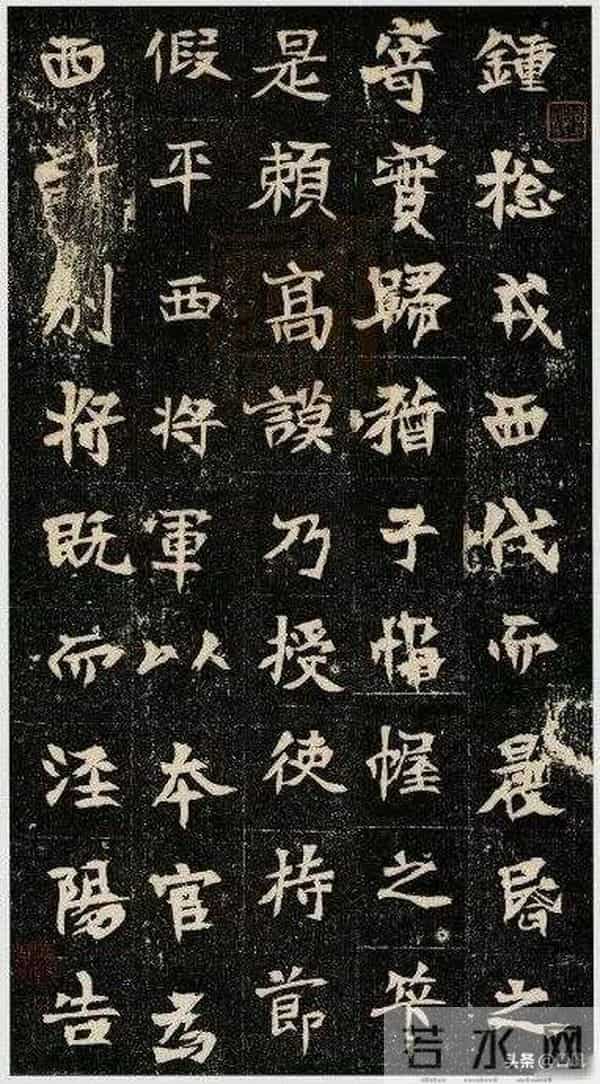 鍾摠戎西伐而晨昏之
寄實歸猶子帷幄之筭
是賴高謨乃授使持節
假平西將軍以本官為
西討別將既而涇陽告
若水网
头条